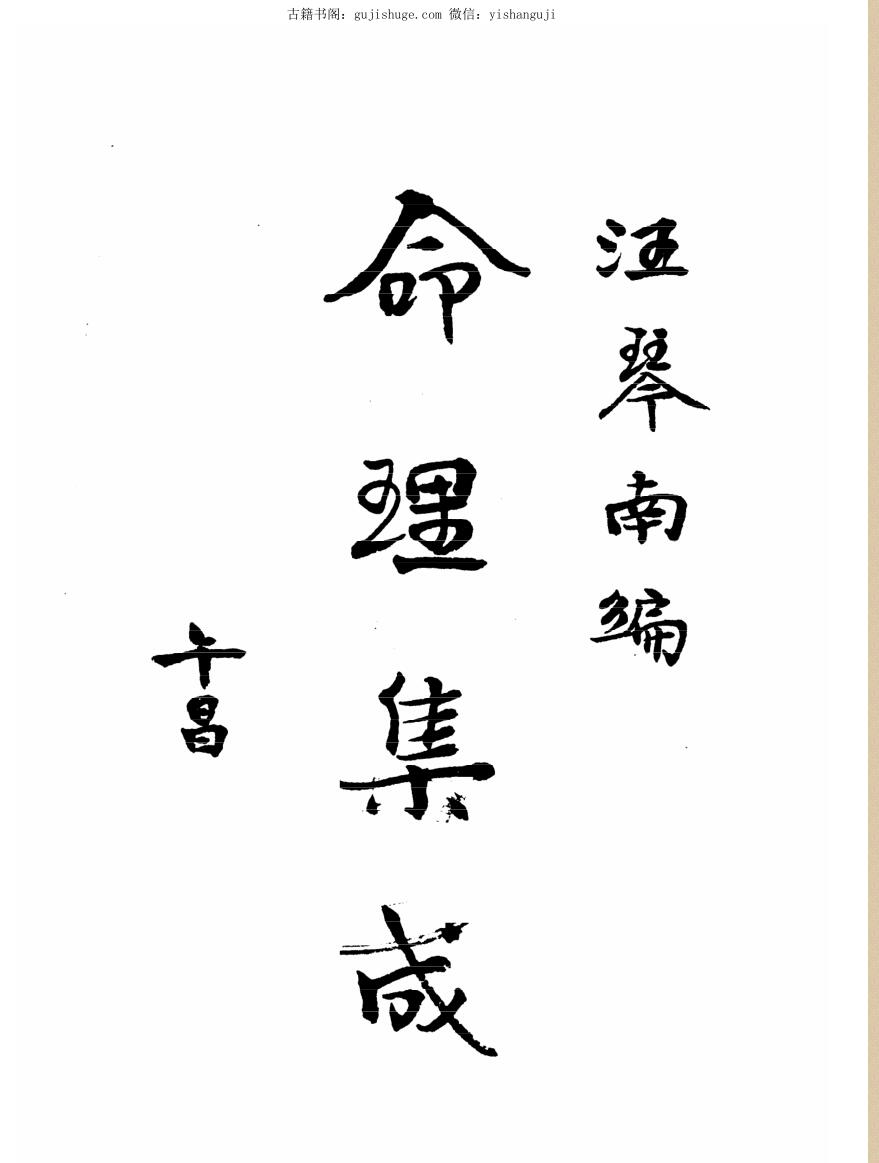 古籍书阁：gujishuge.com 微信：yishanguji
汪琴南編
命理集成
午昌